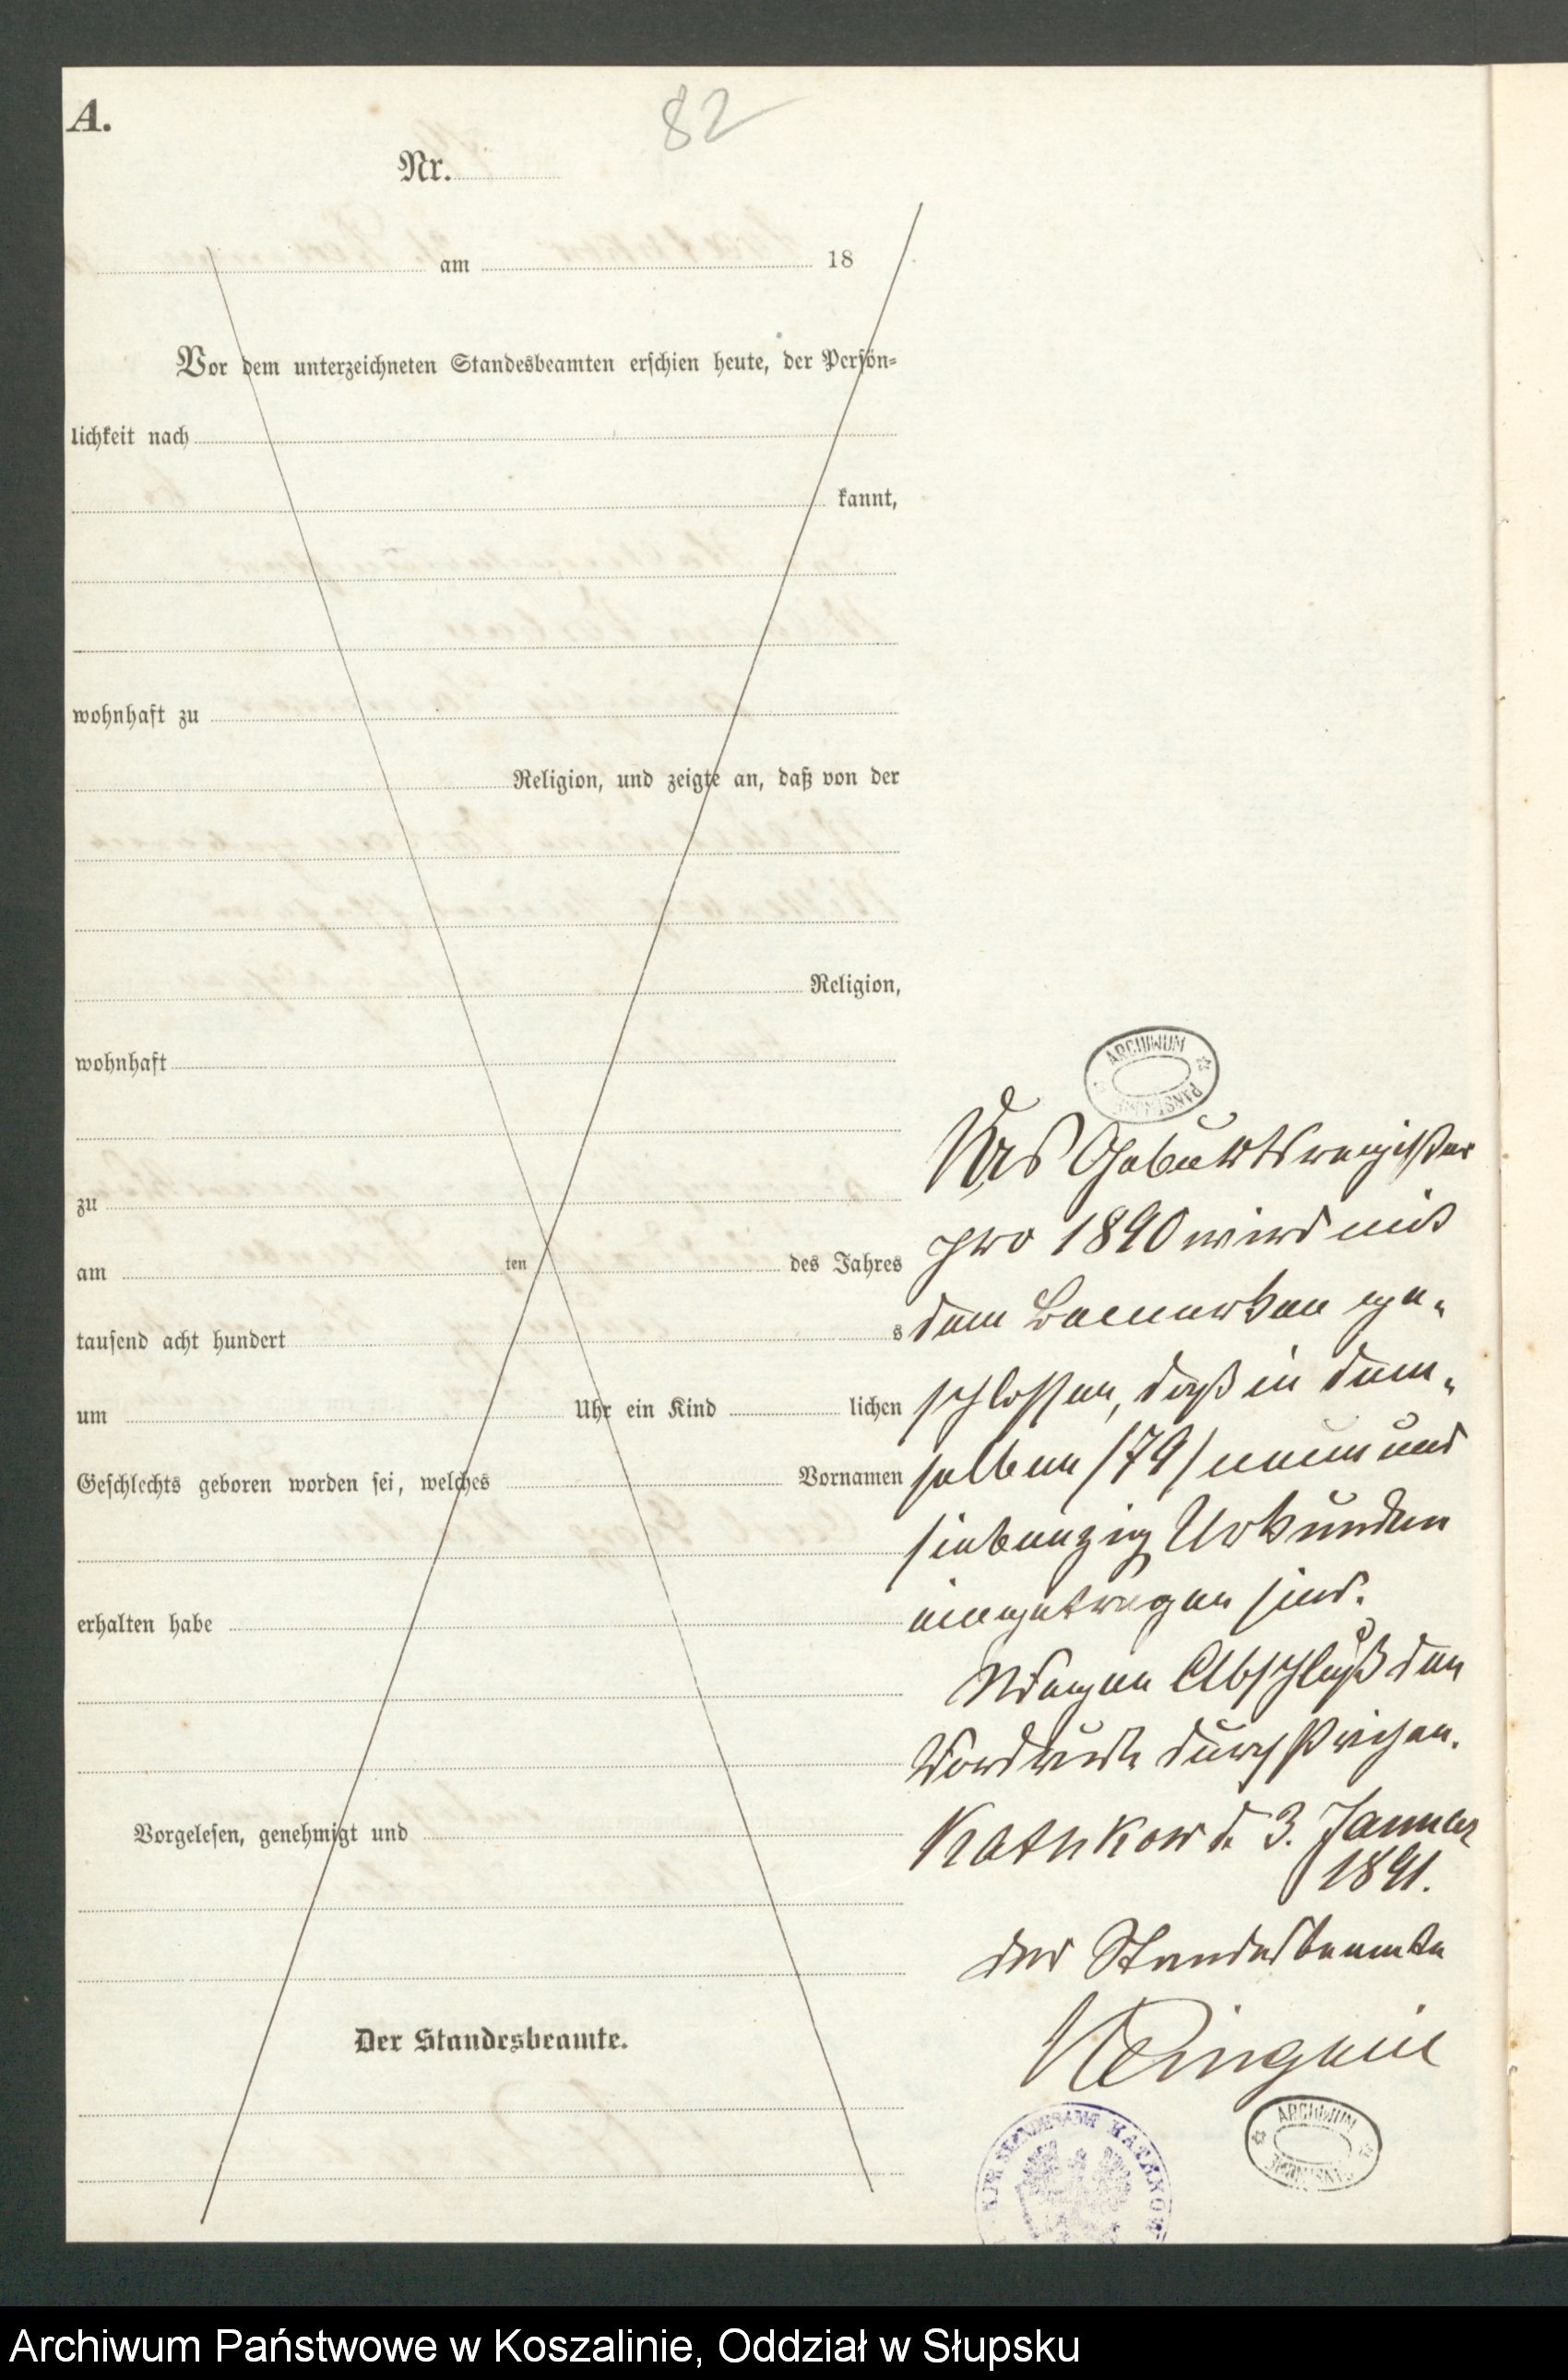 A.
82
Nr.
am 18
Vor dem unterzeichneten Standesbeamten erschien heute, der Persön=
lichkeit nach
kannt,
wohnhaft zu
Religion, und zeigte an, daß von der
Religion,
wohnhaft
zu
am ten des Jahres
tausend acht hundert s
um Uhr ein Kind lichen
Geschlechts geboren worden sei, welches Vornamen
erhalten habe
Vorgelesen, genehmigt und
Der Standesbeamte.
ARCHIWUM
Das Geburtsregister
pro 1890 wird mit
dem Bemerken ge-
schlossen, daß in dem-
selben /79/ neun und
siebenzig Urkunden
eingetragen sind.
Wegen Abschluß den
Vordruck durchstrichen.
Kathkow d. 3. Januar
1891.
Der Standesbeamte
ARCHIWUM
Archiwum Państwowe w Koszalinie, Oddział w Słupsku